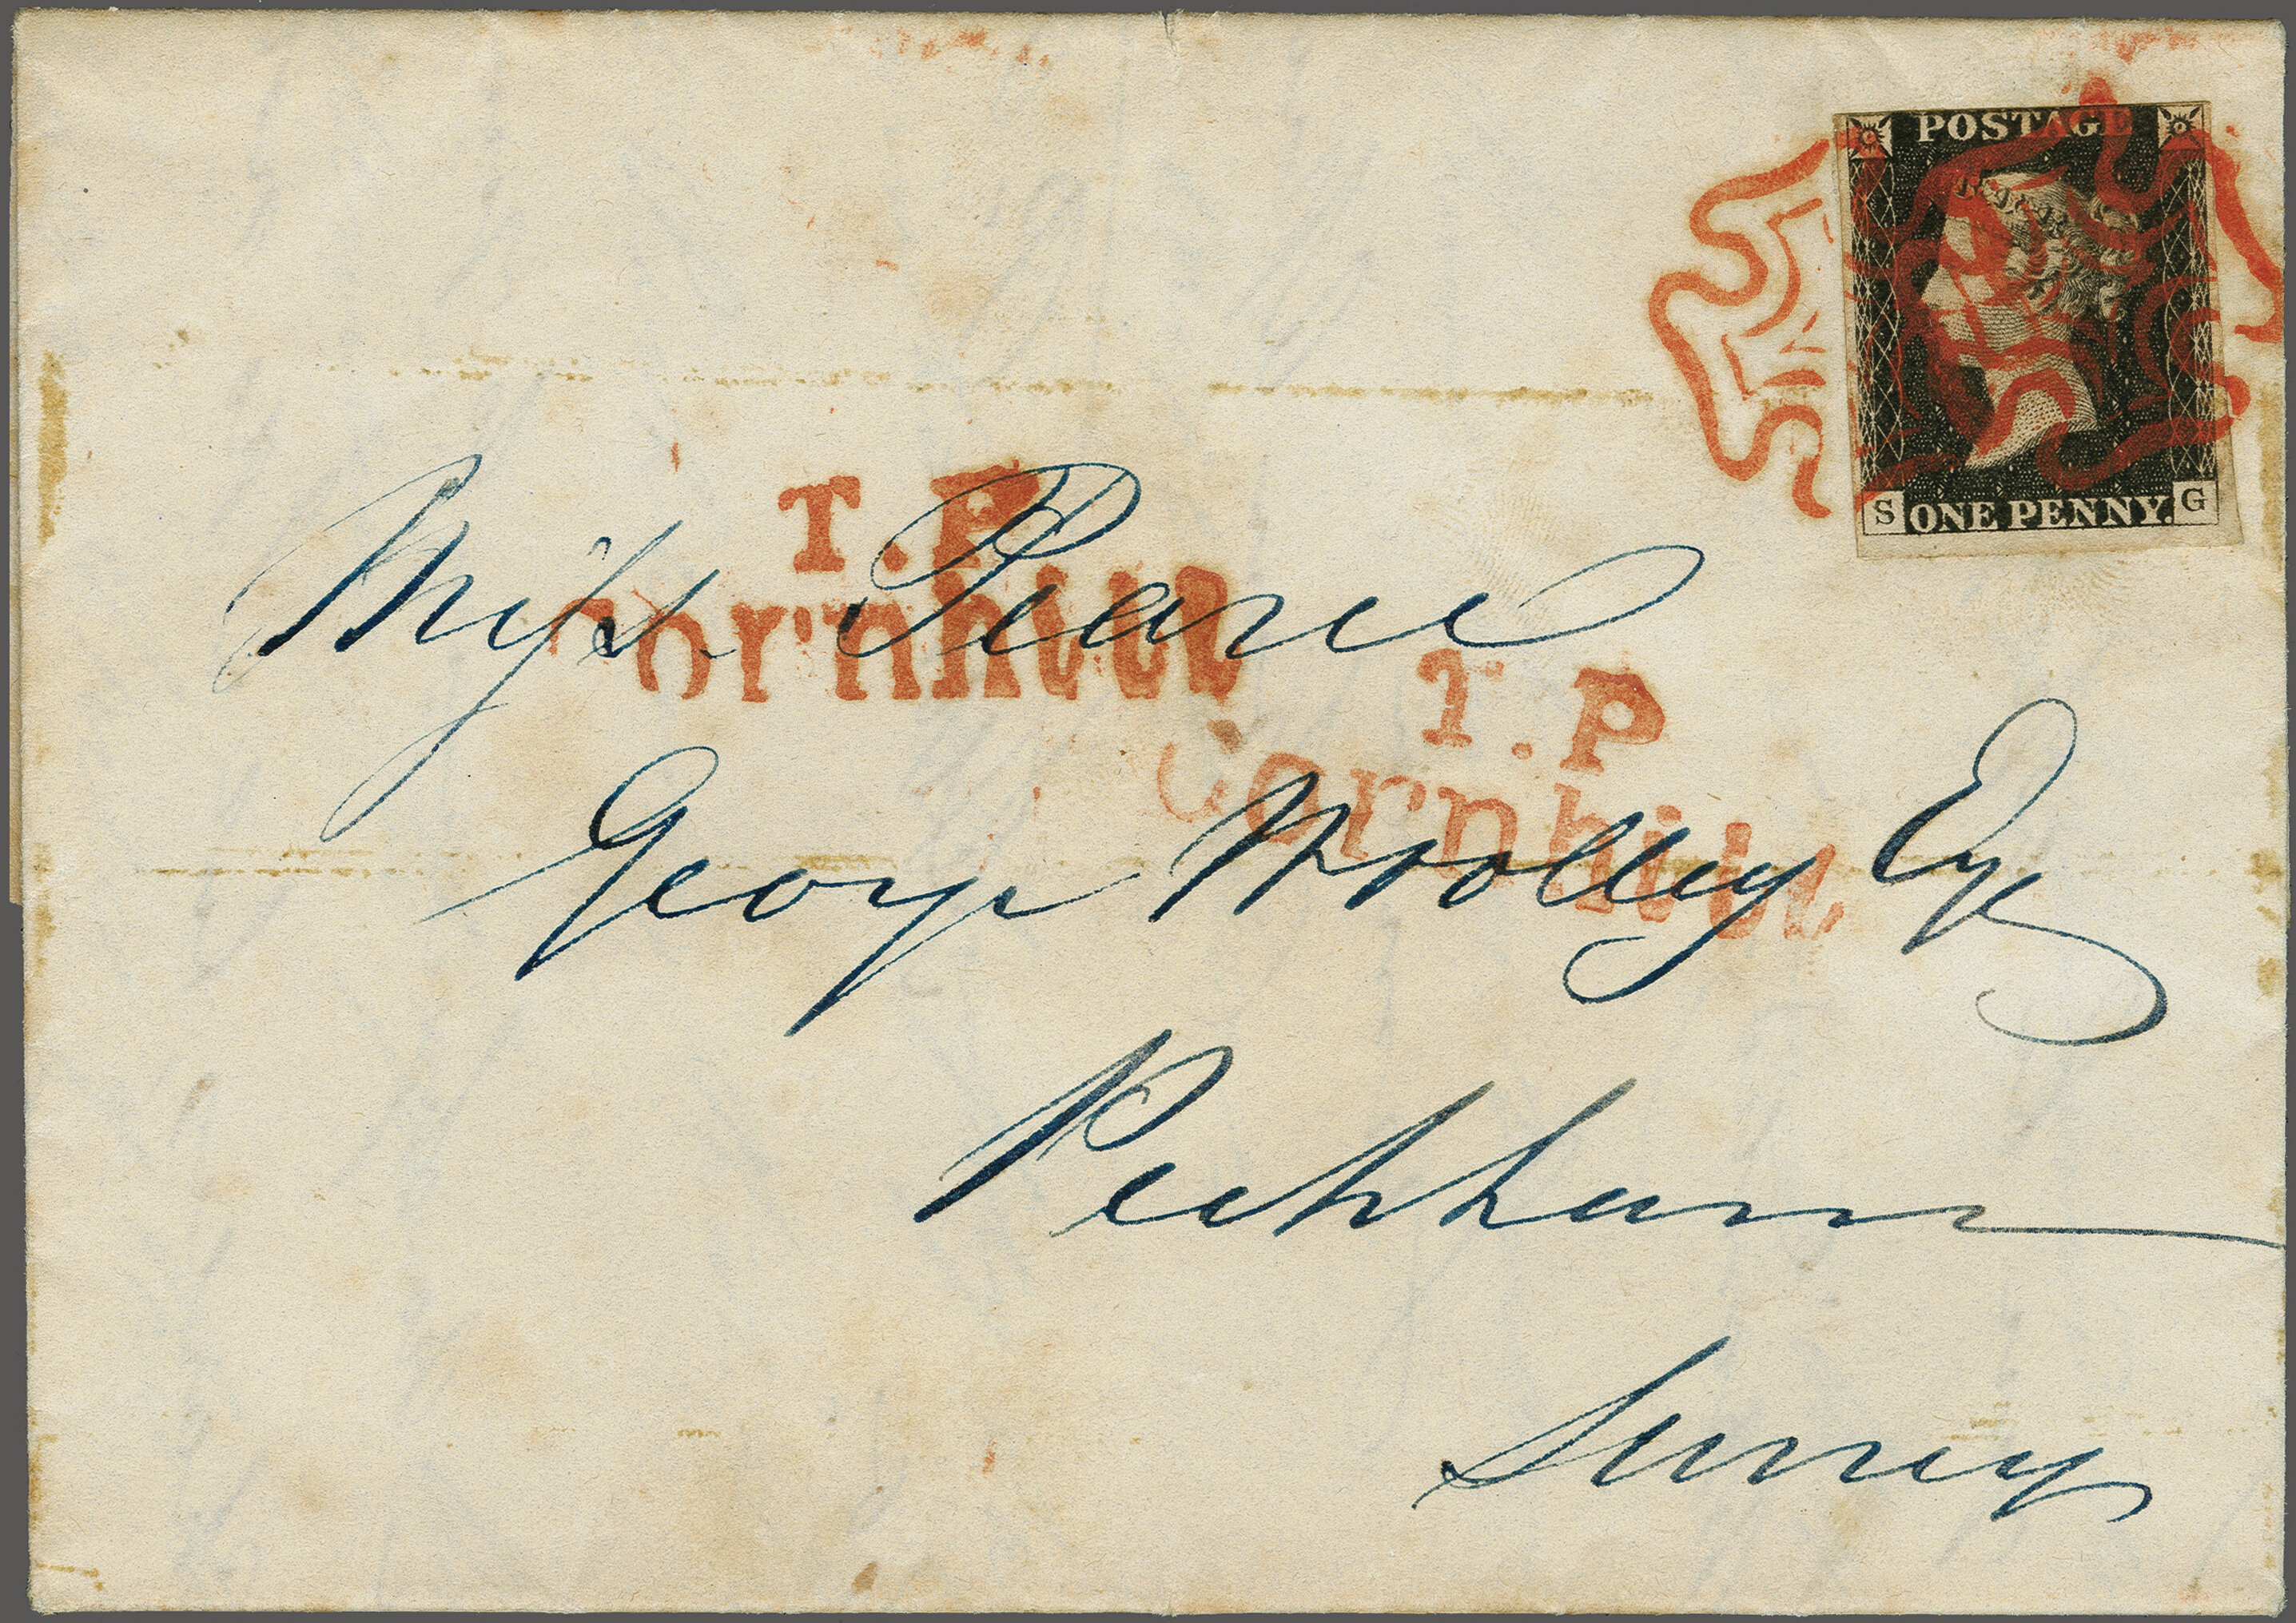 POSTAGE
S ONE PENNY. G
T.P
Cornhill
T.P
Cornhill
Miss Pearce
George Woolley Esq
Peckham
Surrey